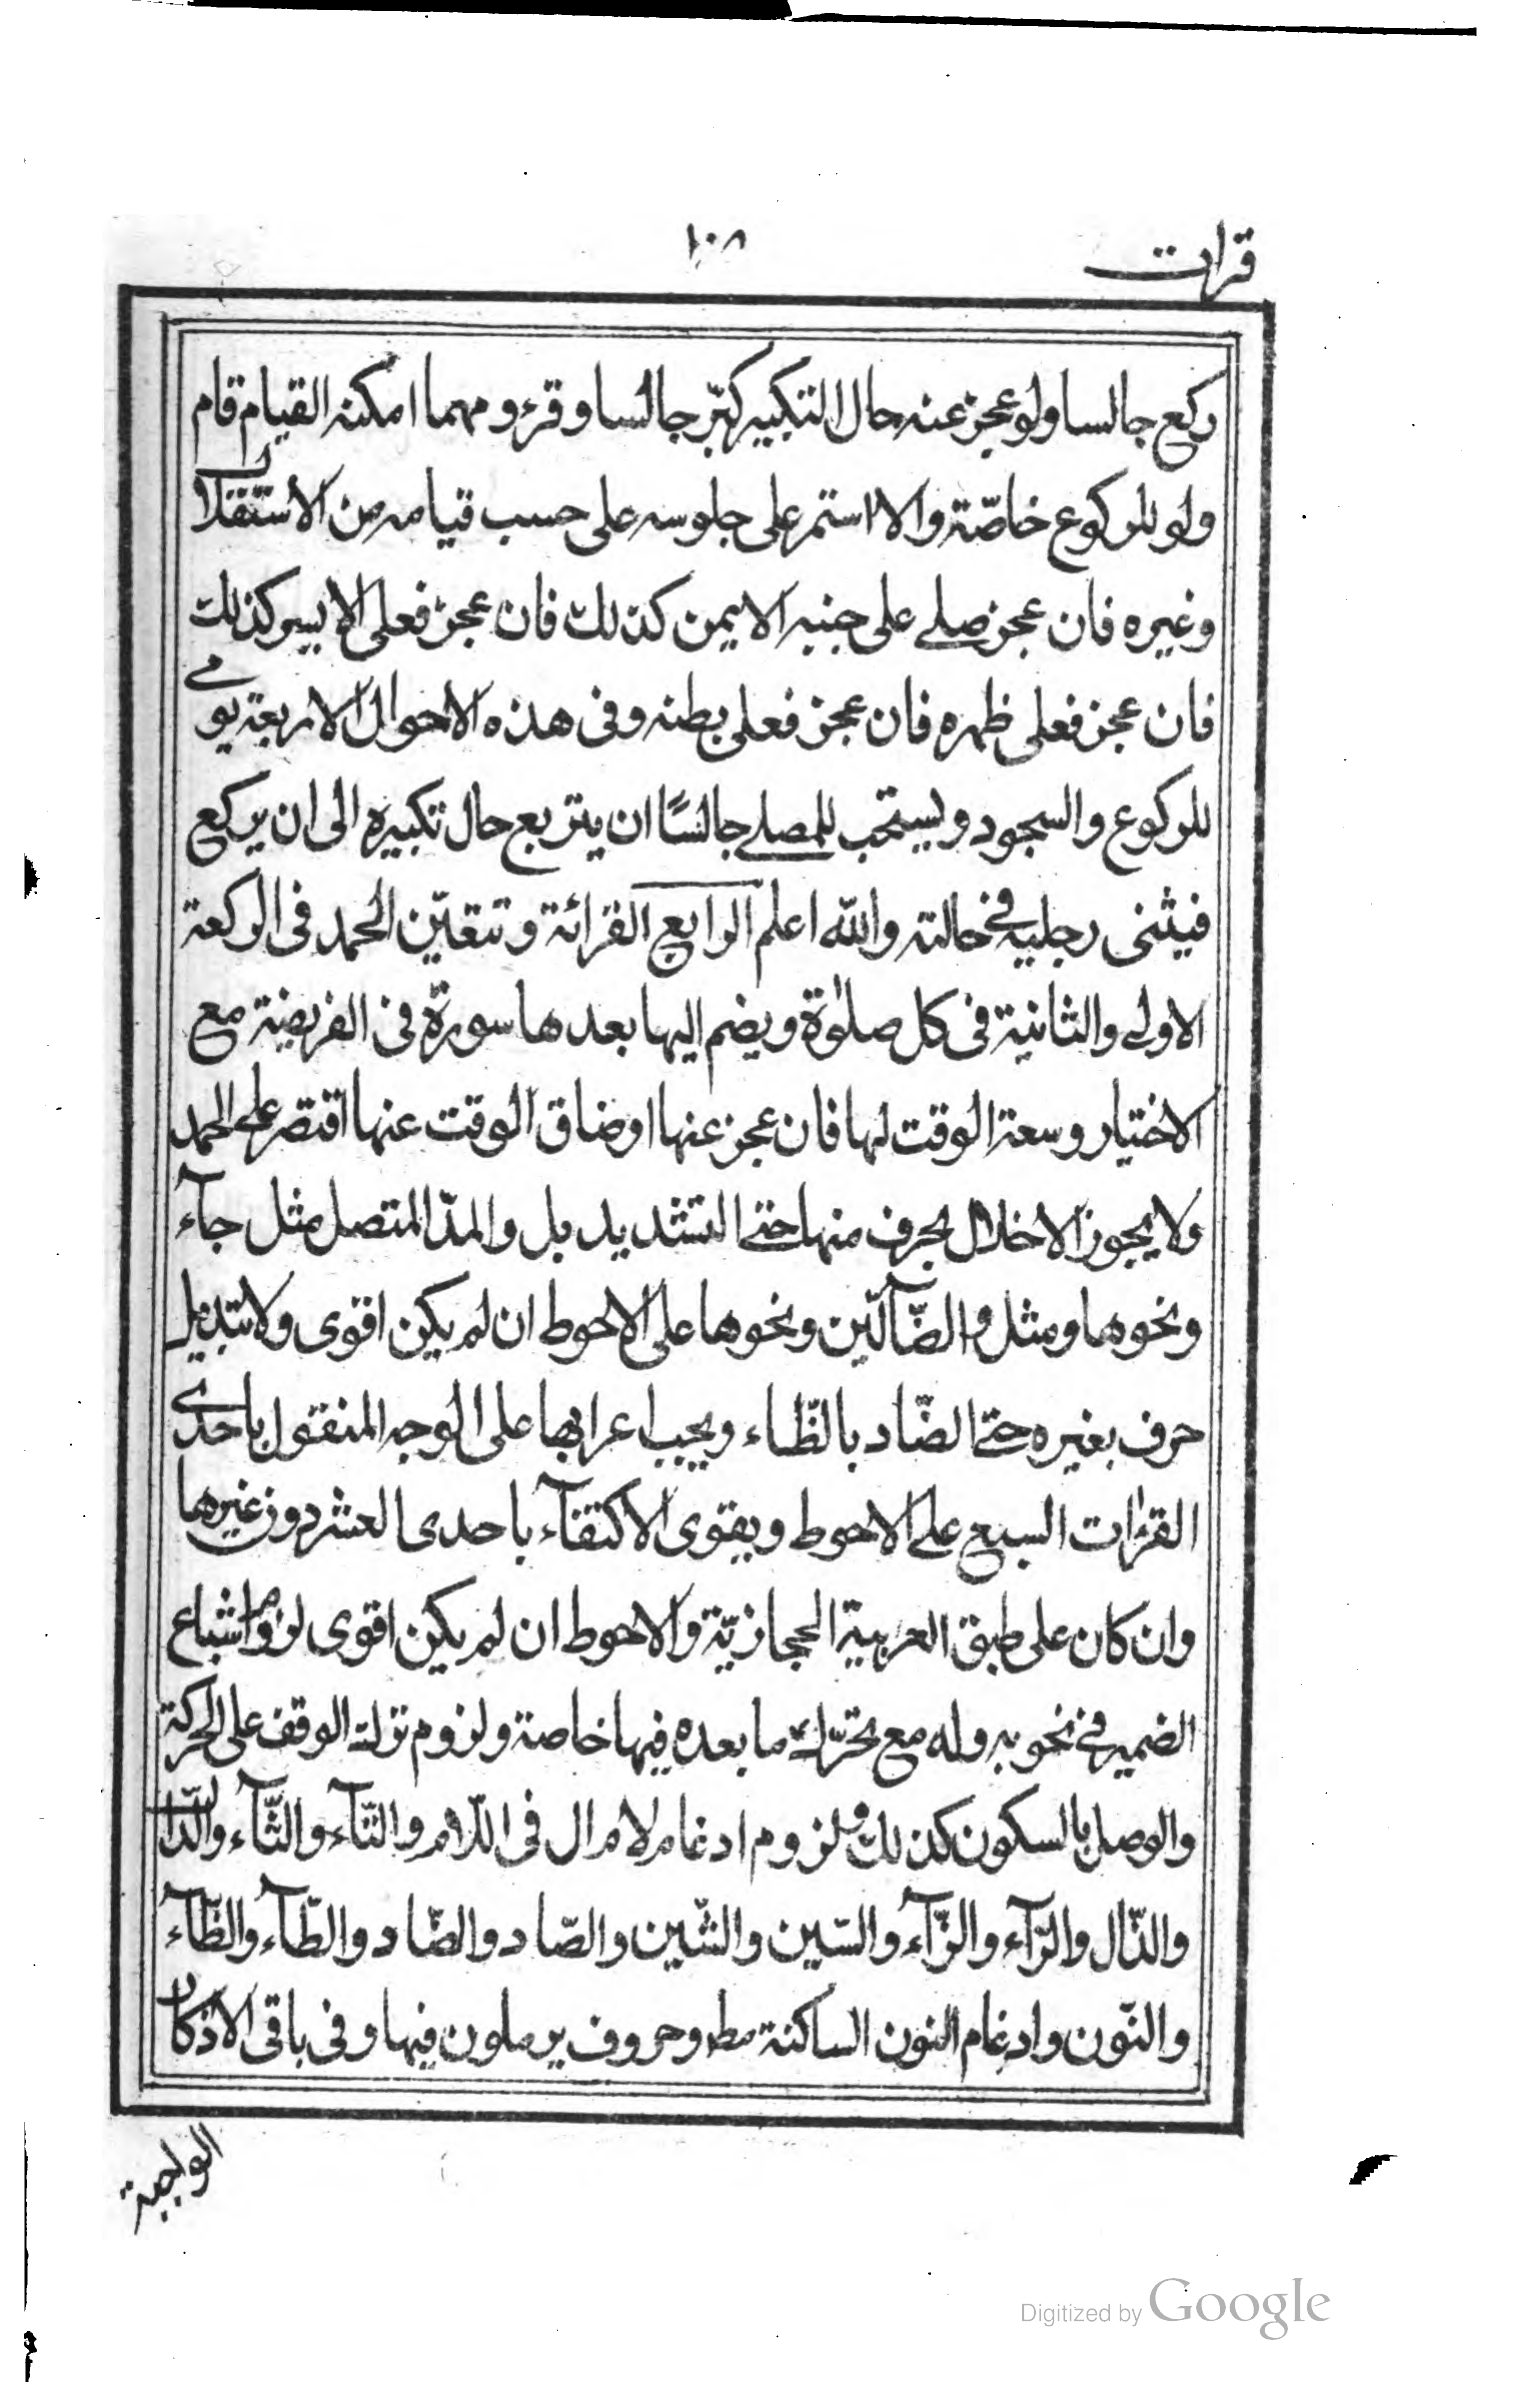 قرات
١٠٨
ركع جالسا ولو عجز عنه حال التكبير كبّر جالسا وقرء ومهما امكنه القيام قام
ولو للركوع خاصّة والا استمر على جلوسه على حسب قيامه من الاستقلال
وغيره فان عجز صلے على جنبه الايمن كذلك فان عجز فعلى الايسر كذلك
فان عجز فعلى ظهره فان عجز فعلى بطنه وفى هذه الاحوال الاربعة يومے
للركوع والسجود ويستحب للمصلے جالسًا ان يتربع حال تكبيره الى ان يركع
فيثنى رجليه فے حالته والله اعلم الرابع القرائة وتتعيّن الحمد فى الركعة
الاولے والثانية فى كل صلوٰة ويضم اليها بعدها سورة فى الفريضة مع
الاختيار وسعة الوقت لها فان عجز عنها او ضاق الوقت عنها اقتصر علے الحمد
ولا يجوز الاخلال بحرف منها حتے التشديد بل والمدّ المتصل مثل جآء
ونحوها ومثل والضّآلّين ونحوها على الاحوط ان لم يكن اقوى ولا تبديل
حرف بغيره حتے الضّاد بالظّاء ويجب اعرابها على الوجه المنقول باحدى
القرٰات السبع علے الاحوط ويقوى الاكتفآء باحدى العشر دون غيرها
وان كان على طبق العربية الحجازيّة والاحوط ان لم يكن اقوى لزوم اشباع
الضمير فے نحو به وله مع تحرّك ما بعده فيها خاصة ولزوم ترك الوقف على الحركة
والوصل بالسكون كذلك ولزوم ادغام لام ال فى اللّام والتّآء والثّآء والدّال
والذّال والرّآء والزّآء والسّين والشّين والصّاد والضّاد والطّآء والظّآء
والنّون وادغام النون الساكنة مط وحروف يرملون فيها وفى باقى الاذكار
الواجبة
Digitized by Google